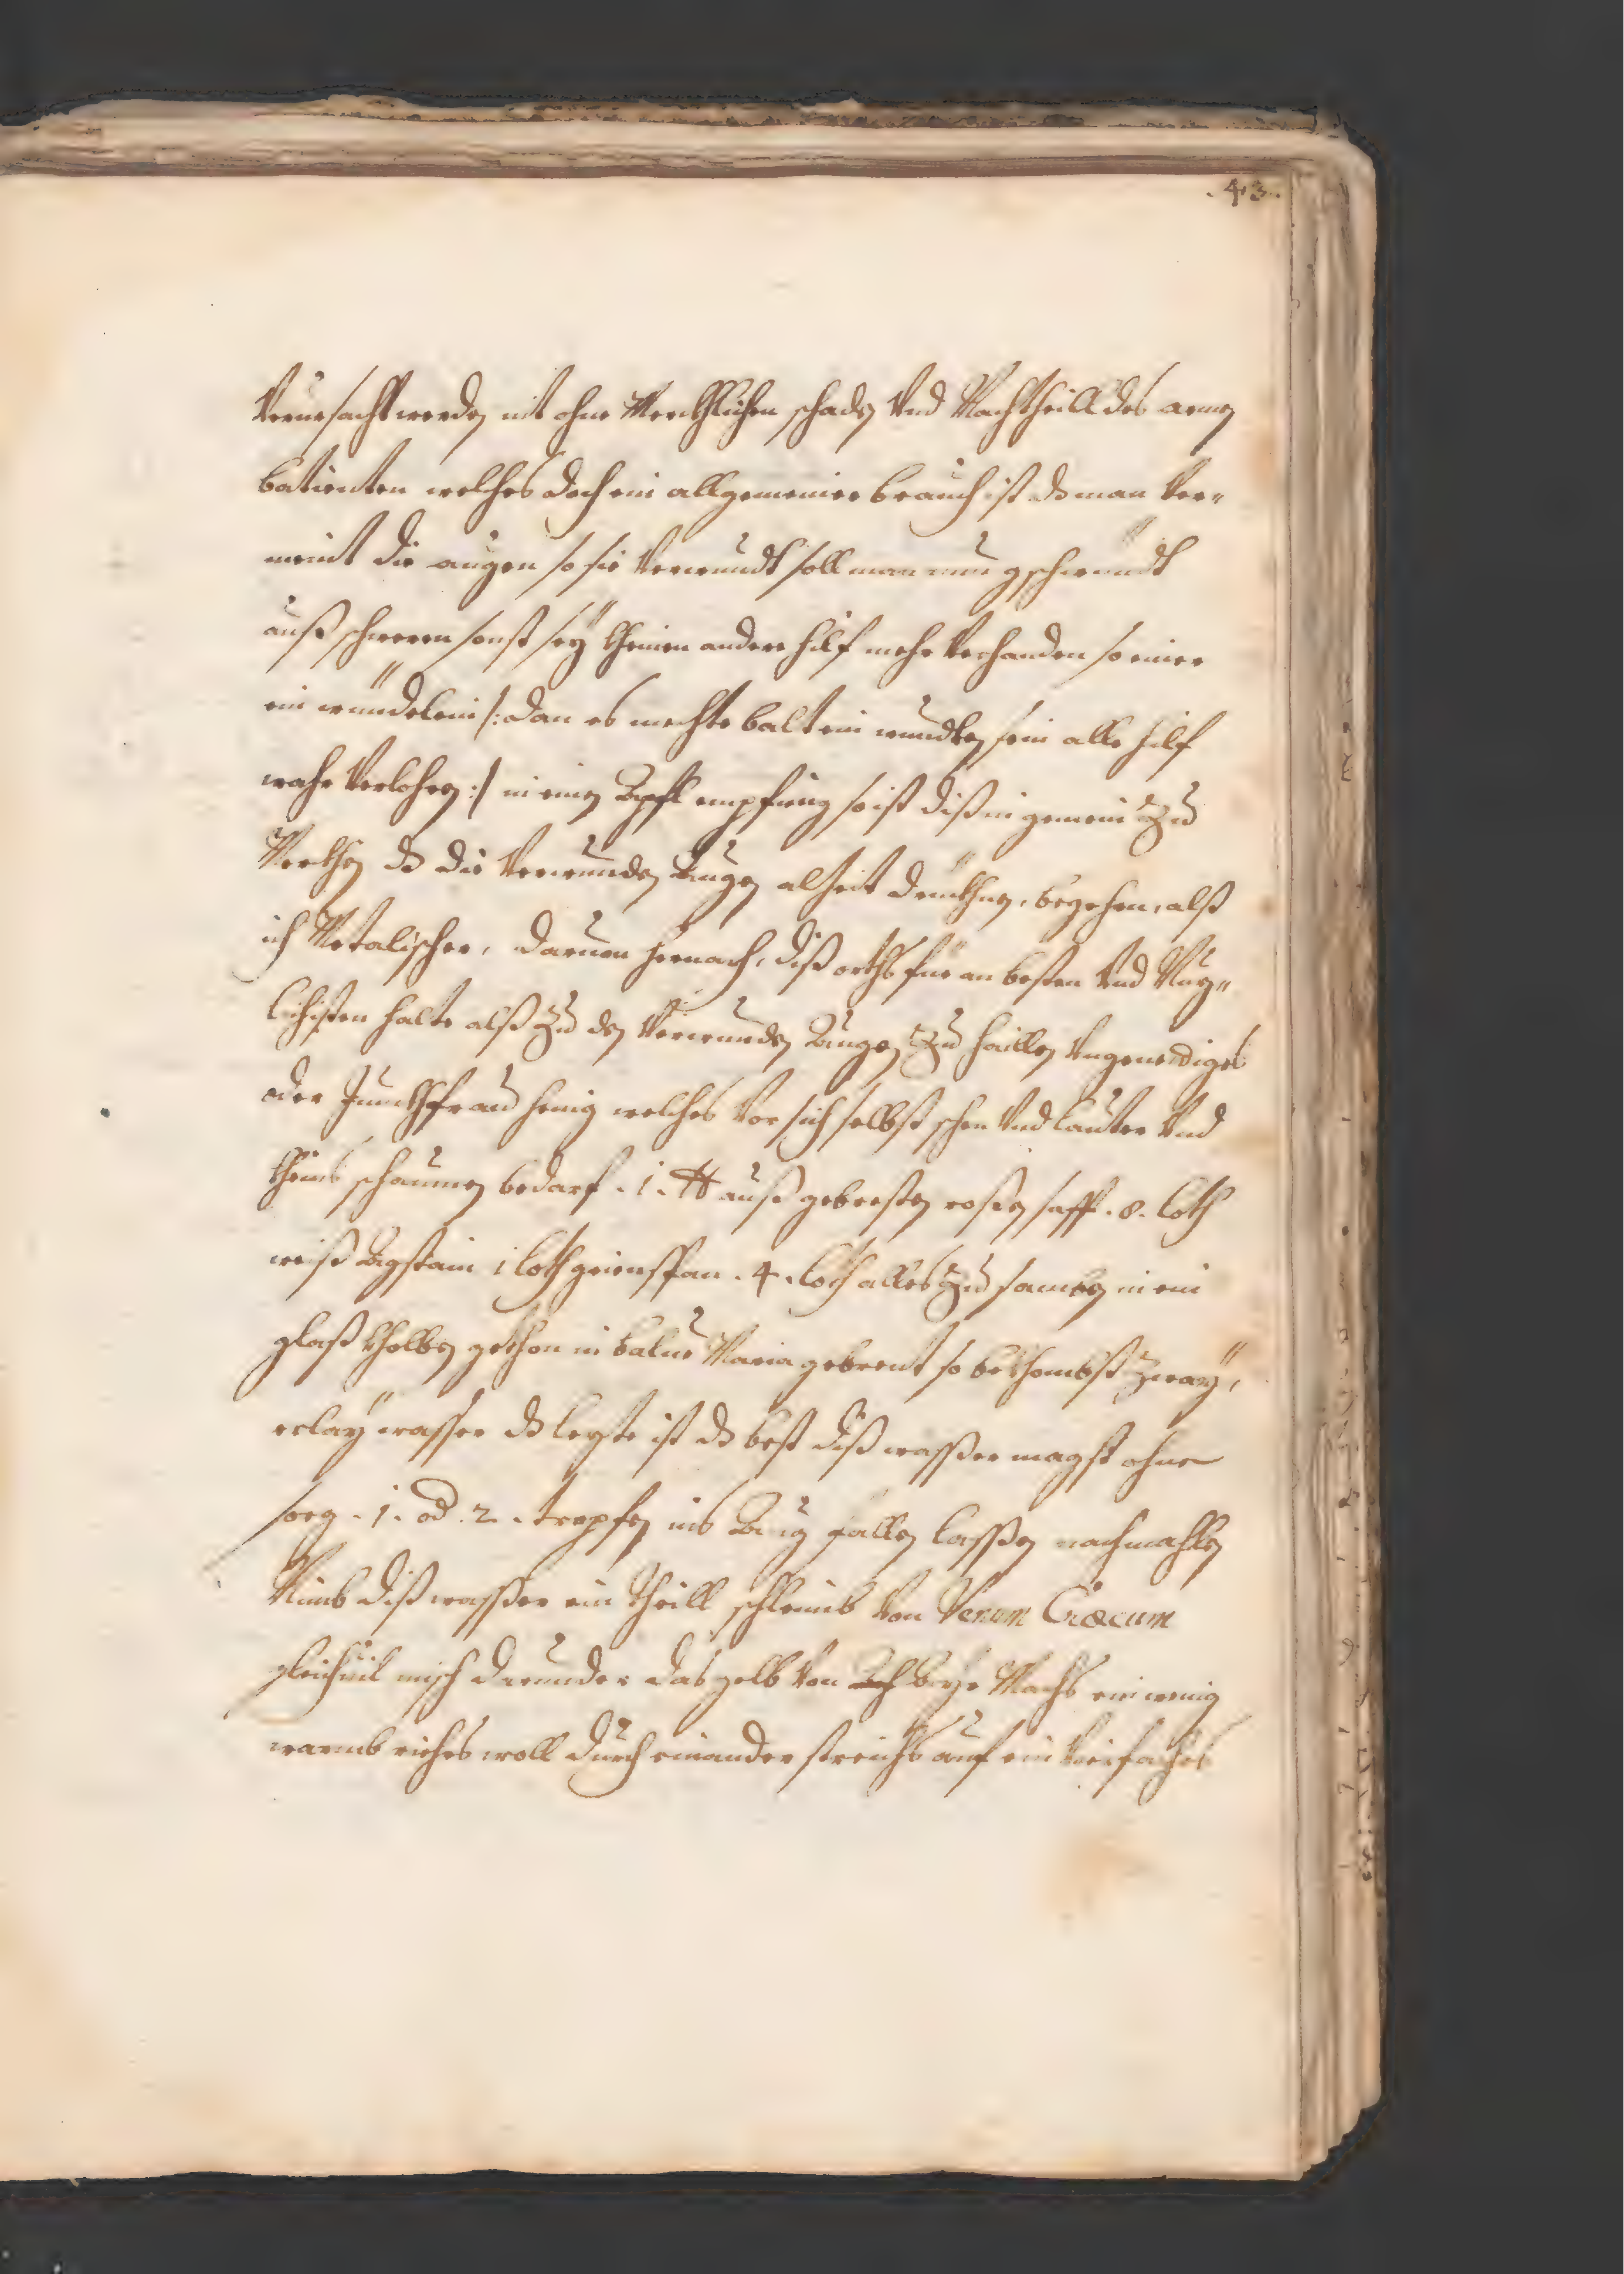 .43.
Verursacht werden nit ohne Merckhlichen schaden Vnd Nachtheill des armen
batienten welches doch ein allgemeiner brauch ist dz man Ver„
meint die augen so sie Verwundt soll man nun gschwündt
auß schweren sonst sey kheinen andere hilf mehr Vorhanden so einer
ein wündelein /: dan es mechte balt ein wundten sein alle hilf
wahr Verlohren :/ in einen Apfl empfüng so ist diß in gemein Zu
Merckhen dz die Verwunden Augen alzeit druckhnen, begehren, alß
ich Metalischer, darumen hernach, diß orths für am besten Vnd Nuz„
lichisten halte alß Zu den Verwunden Augen Zu haillen Vngenediges
oder Junckhfrau henig welches Vor sich selbst schen Vnd lauter Vnd
kheins schaumen bedarf . 1 . ℔ auß gebresten rosen safft . 8 . loth
weiß Agstain 1 loth griensspan . 4 . loth alles Zu samben in ein
glaß kholben gethon in balne Maria gebrent so bekhombst zway,
erlay wasser dz lezte ist dz best diß wasser magst ohne
sorg . 1 . od . 2 . tropfen ins Aug fallen lassen nachmahlen
Nimb diß wasser ein theill schleimb Von Venum Cræcum
gleichvil misch drunder das gelb Von Ayr Machs ein wenig
warmb richs woll durch einander streichs auf ein Vierfaches